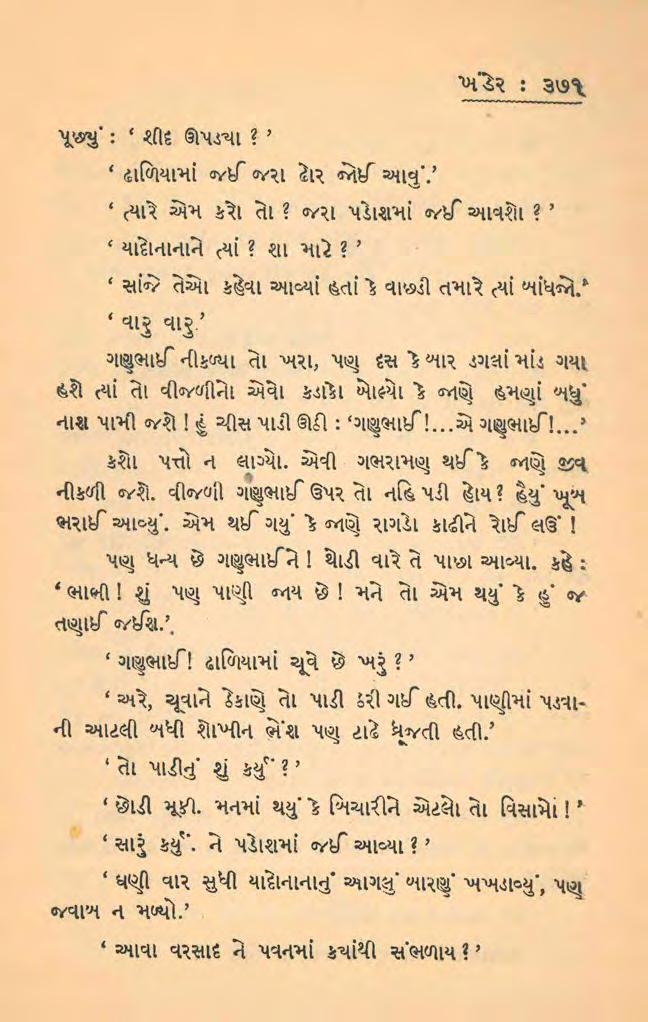 ખંડેર : ૩૭૧
પૂછ્યું : ‘ શીદ ઊપડ્યા ? ’
‘ ઢાળિયામાં જઈ જરા ઢોર જોઈ આવું.’
‘ ત્યારે એમ કરો તો ? જરા પડોશમાં જઈ આવશો ? ’
‘ યાદોનાનાને ત્યાં ? શા માટે ? ’
‘ સાંજે તેઓ કહેવા આવ્યાં હતાં કે વાછડી તમારે ત્યાં બાંધજો.’
‘ વારુ વારુ.’
ગણુભાઈ નીકળ્યા તો ખરા, પણ દસ કે બાર ડગલાં માંડ ગયા
હશે ત્યાં તો વીજળીનો એવો કડાકો બોલ્યો કે જાણે હમણાં બધું
નાશ પામી જશે ! હું ચીસ પાડી ઊઠી : ‘ગણુભાઈ !...એ ગણુભાઈ !...’
કશો પત્તો ન લાગ્યો. એવી ગભરામણ થઈ કે જાણે જીવ
નીકળી જશે. વીજળી ગણુભાઈ ઉપર તો નહિ પડી હોય ? હૈયું ખૂબ
ભરાઈ આવ્યું. એમ થઈ ગયું કે જાણે રાગડો કાઢીને રોઈ લઉં !
પણ ધન્ય છે ગણુભાઈને ! થોડી વારે તે પાછા આવ્યા. કહે :
‘ ભાભી ! શું પણ પાણી જાય છે ! મને તો એમ થયું કે હું જ
તણાઈ જઈશ.’
‘ ગણુભાઈ! ઢાળિયામાં ચૂવે છે ખરું ? ’
‘ અરે, ચૂવાને ઠેકાણે તો પાડી ઠરી ગઈ હતી. પાણીમાં પડવા-
ની આટલી બધી શોખીન ભેંશ પણ ટાઢે ધ્રૂજતી હતી.’
‘ તો પાડીનું શું કર્યું ? ’
‘ છોડી મૂકી. મનમાં થયું કે બિચારીને એટલો તો વિસામો ! ’
‘ સારું કર્યું. ને પડોશમાં જઈ આવ્યા ? ’
‘ ઘણી વાર સુધી યાદોનાનાનું આગલું બારણું ખખડાવ્યું, પણ
જવાબ ન મળ્યો.’
‘ આવા વરસાદ ને પવનમાં કયાંથી સંભળાય ? ’